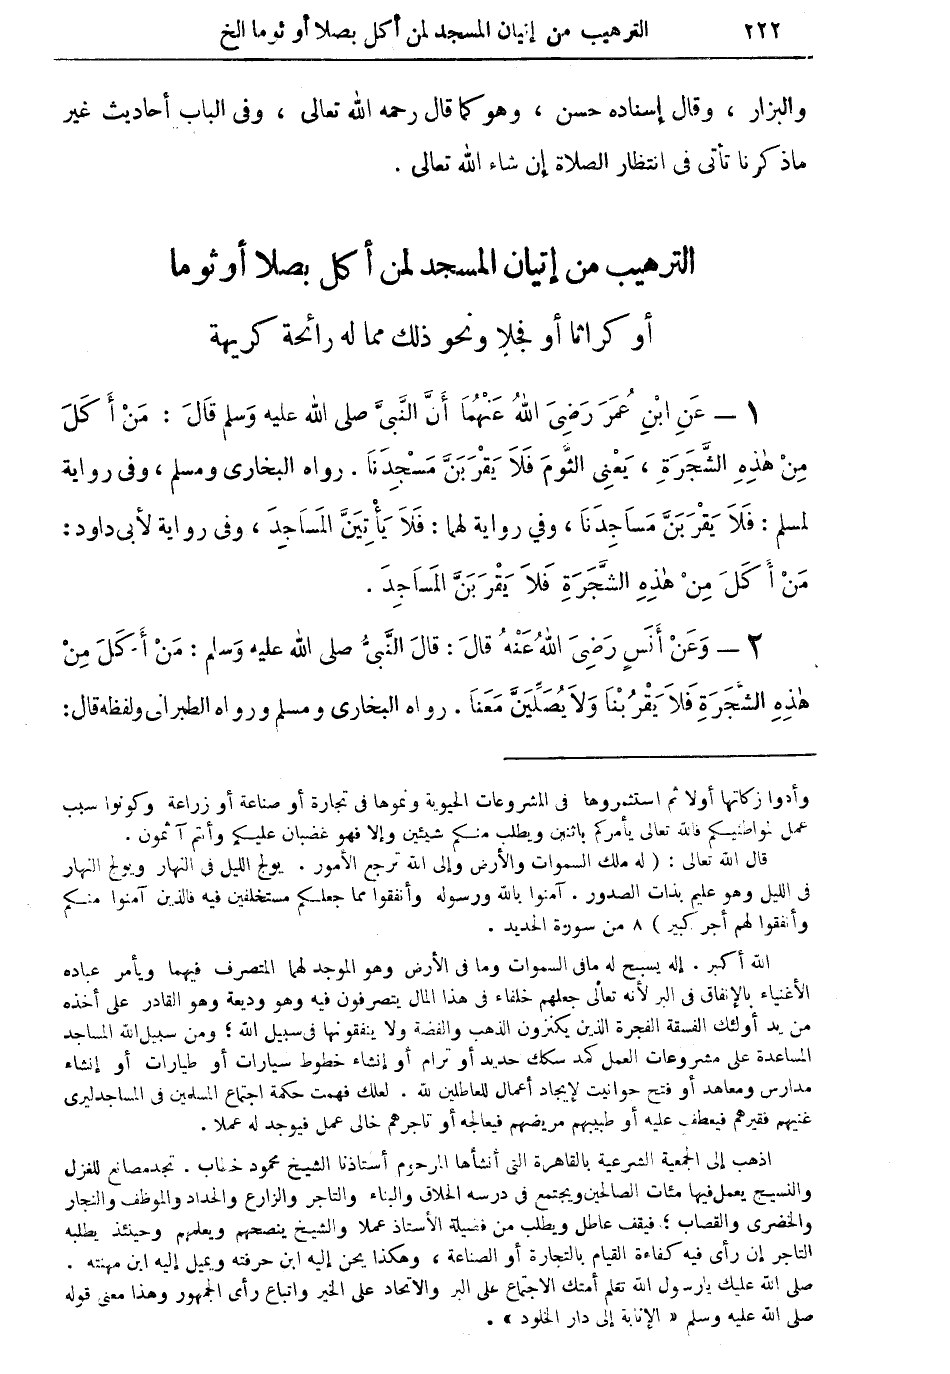 ٢٢٢ الترهيب من إتيان المسجد لمن أكل بصلا أو ثوما الخ
والبزار ، وقال إسناده حسن ، وهو كما قال رحمه الله تعالى ، وفى الباب أحاديث غير
ماذكرنا تأتى فى انتظار الصلاة إن شاء الله تعالى .
الترهيب من إتيان المسجد لمن أكل بصلا أو ثوما
أو كراثا أو فجلا ونحو ذلك مما له رائحة كريهة
١ – عَنِ ابْنِ عُمَرَ رَضِىَ اللهُ عَنْهُمَا أَنَّ النَّبِىَّ صلى الله عليه وَسلم قَالَ : مَنْ أَ كَلَ
مِنْ هٰذِهِ الشَّجَرَةِ ، يَعْنِى الثُّومَ فَلَا يَقْرَبَنَّ مَسْجِدَنَا . رواه البخارى ومسلم ، وفى رواية
لمسلم : فَلَا يَقْرَبَنَّ مَسَاجِدَنَا ، وفي رواية لهما : فَلَا يَأْتِيَنَّ المَسَاجِدَ ، وفى رواية لأبى داود :
مَنْ أَ كَلَ مِنْ هٰذِهِ الشَّجَرَةِ فَلاَ يَقْرَبَنَّ المَسَاجِدَ .
٢ – وَعَنْ أَنَسٍ رَضِىَ اللهُ عَنْهُ قَالَ : قَالَ النَّبِىُّ صلى الله عليه وَسلم : مَنْ أَ كَلَ مِنْ
هٰذِهِ الشَّجَرَةِ فَلاَ يَقْرُبْنَا وَلاَ يُصَلِّيَنَّ مَعَنَا . رواه البخارى ومسلم ورواه الطبرانى ولفظه قال :
وأدوا زكاتها أولا ثم استثمروها فى المشروعات الحيوية ونموها فى تجارة أو صناعة أو زراعة وكونوا سبب
عمل لمواطنيكم فالله تعالى يأمركم باثنين ويطلب منكم شيئين وإلا فهو غضبان عليكم وأنتم آثمون .
قال الله تعالى : ( له ملك السموات والأرض وإلى الله ترجع الأمور . يولج الليل فى النهار ويولج النهار
فى الليل وهو عليم بذات الصدور . آمنوا بالله ورسوله وأنفقوا مما جعلكم مستخلفين فيه فالذين آمنوا منكم
وأنفقوا لهم أجر كبير ) ٨ من سورة الحديد .
الله أكبر . إله يسبح له مافى السموات وما فى الأرض وهو الموجد لهما المتصرف فيهما ويأمر عباده
الأغنياء بالإنفاق فى البر لأنه تعالى جعلهم خلفاء فى هذا المال يتصرفون فيه وهو وديعة وهو القادر على أخذه
من يد أولئك الفسقة الفجرة الذين يكنزون الذهب والفضة ولا ينفقونها فى سبيل الله ؛ ومن سبيل الله المساجد
المساعدة على مشروعات العمل كمد سكك حديد أو ترام أو إنشاء خطوط سيارات أو طيارات أو إنشاء
مدارس ومعاهد أو فتح حوانيت لإيجاد أعمال للعاطلين لله . لعلك فهمت حكمة اجتماع المسلمين فى المساجد ليرى
غنيهم فقيرهم فيعطف عليه أو طبيبهم مريضهم فيعالجه أو تاجرهم خالى عمل فيوجد له عملا .
اذهب إلى الجمعية الشرعية بالقاهرة التى أنشأها المرحوم أستاذنا الشيخ محمود خطاب . تجد مصانع للغزل
والنسيج يعمل فيها مئات الصالحين ويجتمع فى درسه الحلاق والبناء والتاجر والزارع والحداد والموظف والنجار
والخضرى والقصاب ؛ فيقف عاطل ويطلب من فضيلة الأستاذ عملا والشيخ ينصحهم ويعلمهم وحينئذ يطلبه
التاجر إن رأى فيه كفاءة القيام بالتجارة أو الصناعة ، وهكذا يحن إليه ابن حرفته ويميل إليه ابن مهنته .
صلى الله عليك يارسول الله تعلم أمتك الاجتماع على البر والاتحاد على الخير واتباع رأى الجمهور وهذا معنى قوله
صلى الله عليه وسلم « الإنابة إلى دار الخلود » .